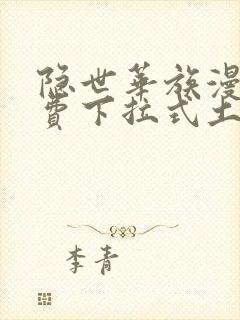 隐世华族漫
费下拉式土
李青